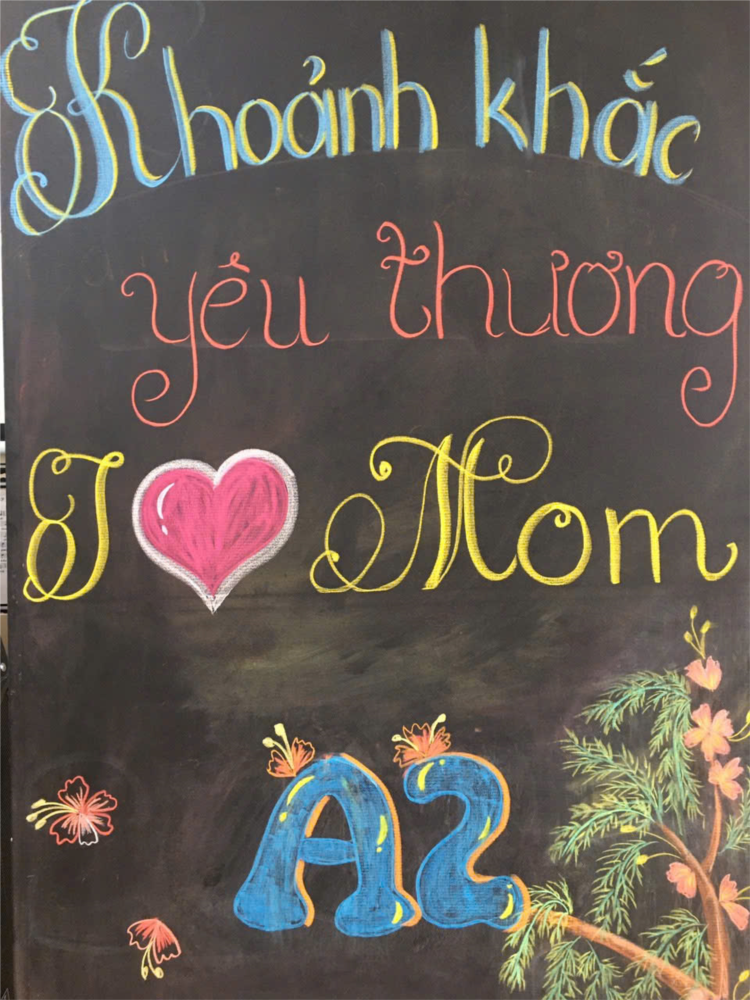 Khoảnh khắc
yêu thương
I ❤ Mom
A2